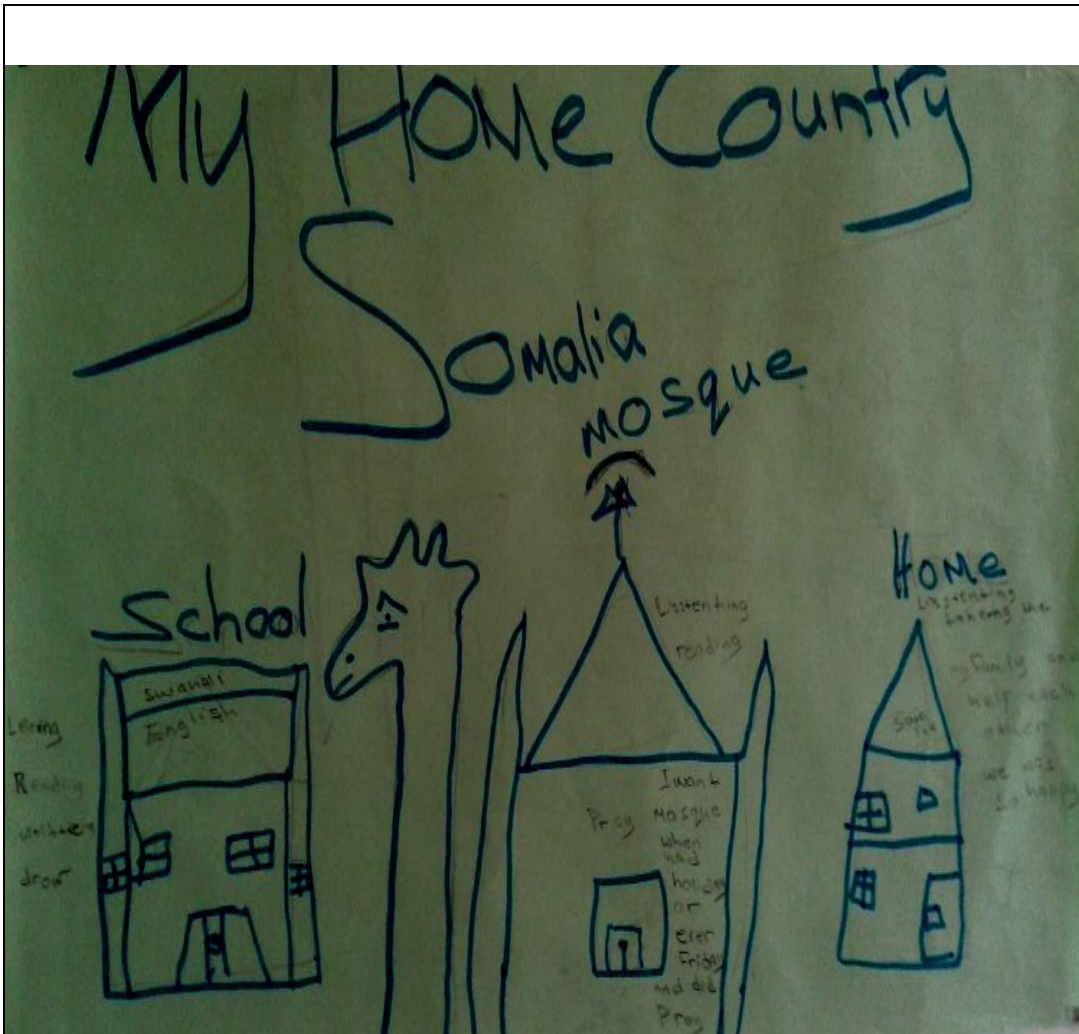 My Home Country
Somalia
Mosque
School
swahili
English
Reading
written
drow
Lisstenting
reading
I want
Pray Mosque
when
had
holiday
or
ever
Friday
and did
Pray
Home
Lisstenting
my Family and
help each
other
we was
So happy